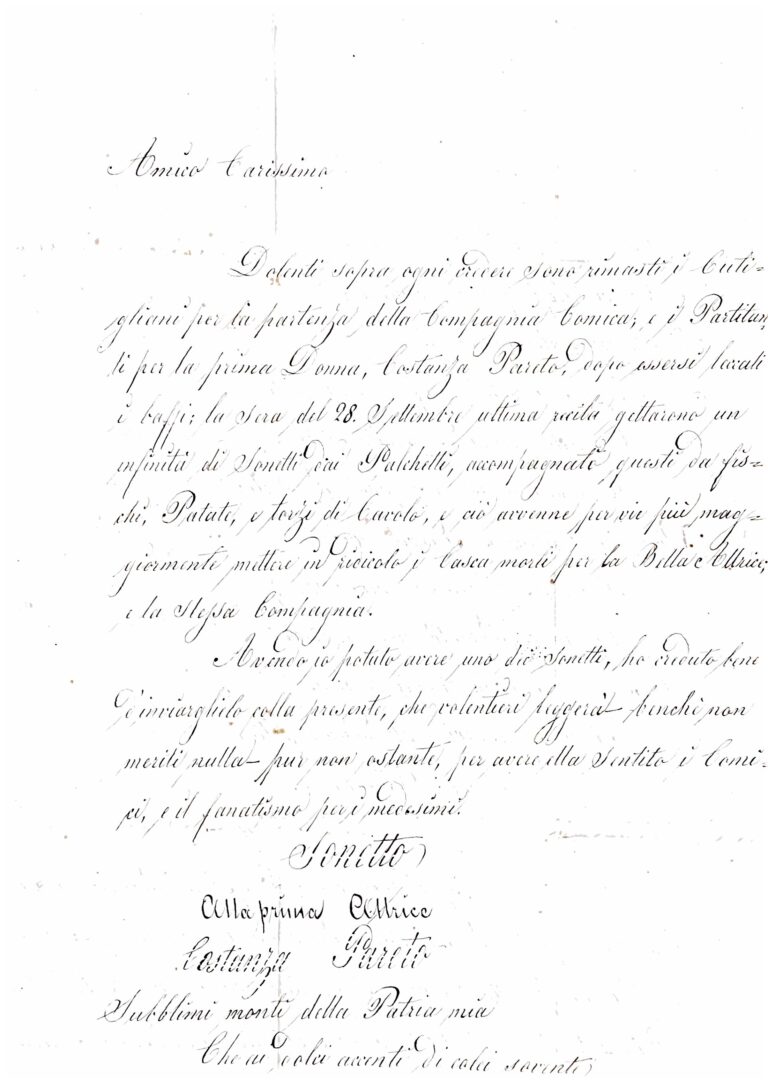 Amico Carissimo
Dolenti sopra ogni credere sono rimasti i Cuti=
gliani per la partenza della Compagnia Comica; e i Partitan
ti per la prima Donna, Costanza Pareto, dopo essersi leccati
i baffi; la sera del 28. Settembre ultima recita gettarono un
infinità di Sonetti dai Palchetti, accompagnati questi da fis=
chi, Patate, e torzi di Cavolo, e ciò avvenne per vie più mag=
giormente mettere in ridicolo i Casca morti per la Bella Attrice,
e la stessa Compagnia.
Avendo io potuto avere uno dei Sonetti, ho creduto bene
d'inviarglielo colla presente, che volentieri leggerà benchè non
meriti nulla pur non ostante, per avere ella Sentito i Comi=
ci, e il fanatismo per i medesimi.
Sonetto
Alla prima Attrice
Costanza Pareto
Subblimi monti della Patria mia
Che ai dolci accenti di colei sovente